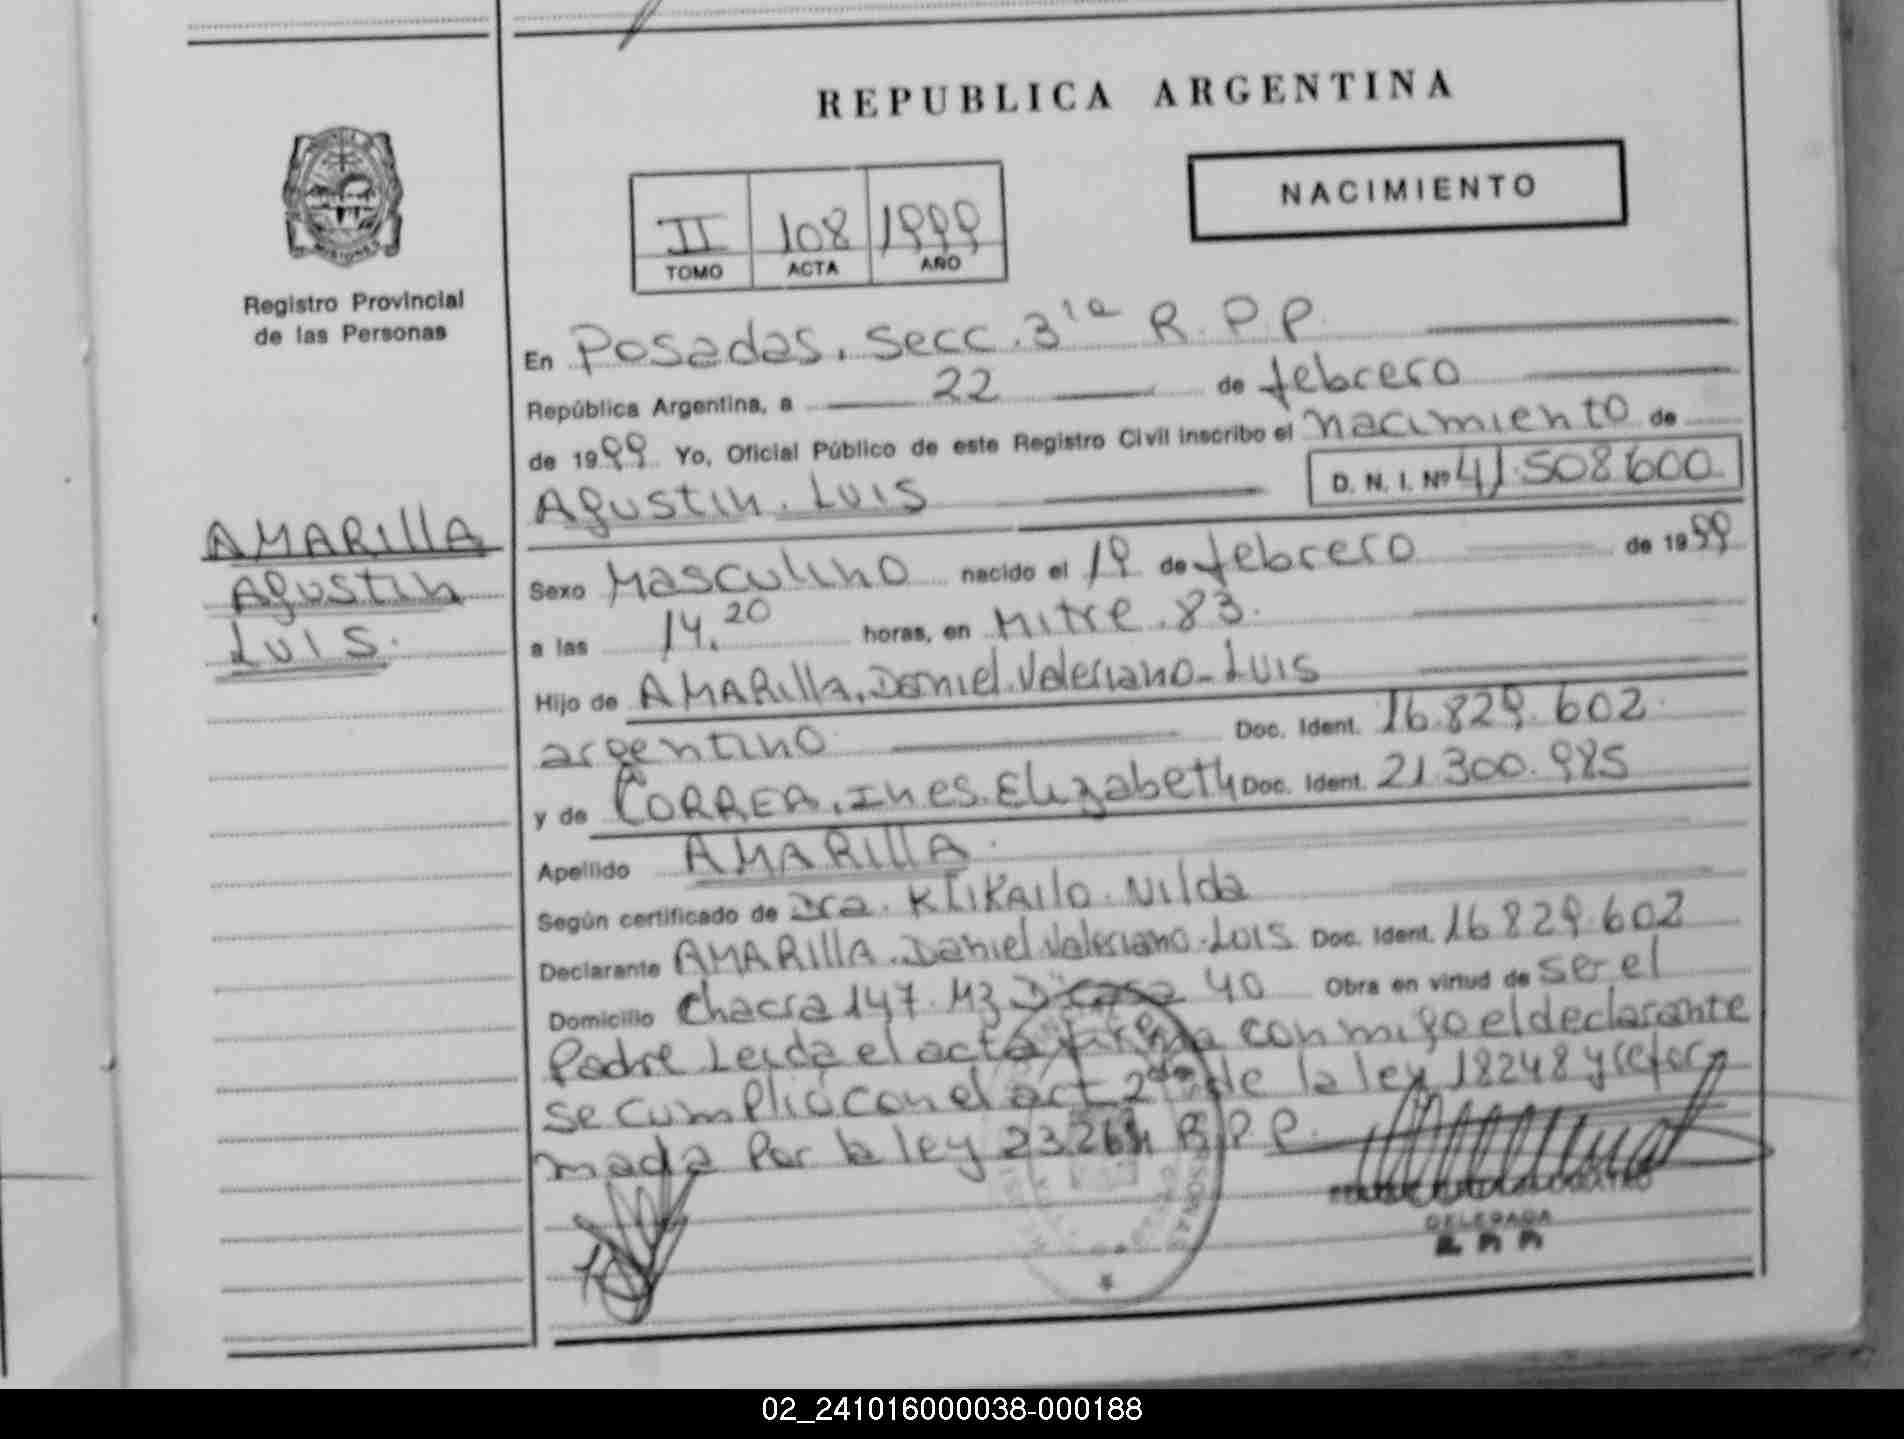 REPUBLICA ARGENTINA
NACIMIENTO
II 108 1999
TOMO ACTA AÑO
Registro Provincial
de las Personas
En Posadas. Secc. 3ra R.P.P.
República Argentina, a 22 de febrero
de 1999 Yo, Oficial Público de este Registro Civil inscribo el nacimiento de
Agustin. Luis D. N. I. Nº 41.508600
AMARIllA
Agustin
Luis.
Sexo Masculino nacido el 19 de febrero de 1999
a las 14.20 horas, en Mitre. 83.
Hijo de AMARIllA. Daniel. Valeriano - Luis
argentino Doc. Ident. 16.829.602
y de CORREA. Ines. Elizabeth Doc. Ident. 21.300.985
Apellido AMARIllA.
Según certificado de Dra. KLIKAILO. Nilda
Declarante AMARIllA. Daniel Valeriano. Luis Doc. Ident. 16829.602
Domicilio Chacra 147. Mz D casa 40 Obra en virtud de ser el
Padre Leida el acta firma conmigo el declarante
se cumplió con el art 2do de la ley 18248 y refor
mada por la ley 23264 R.P.P.
DELEGADA
02_241016000038-000188